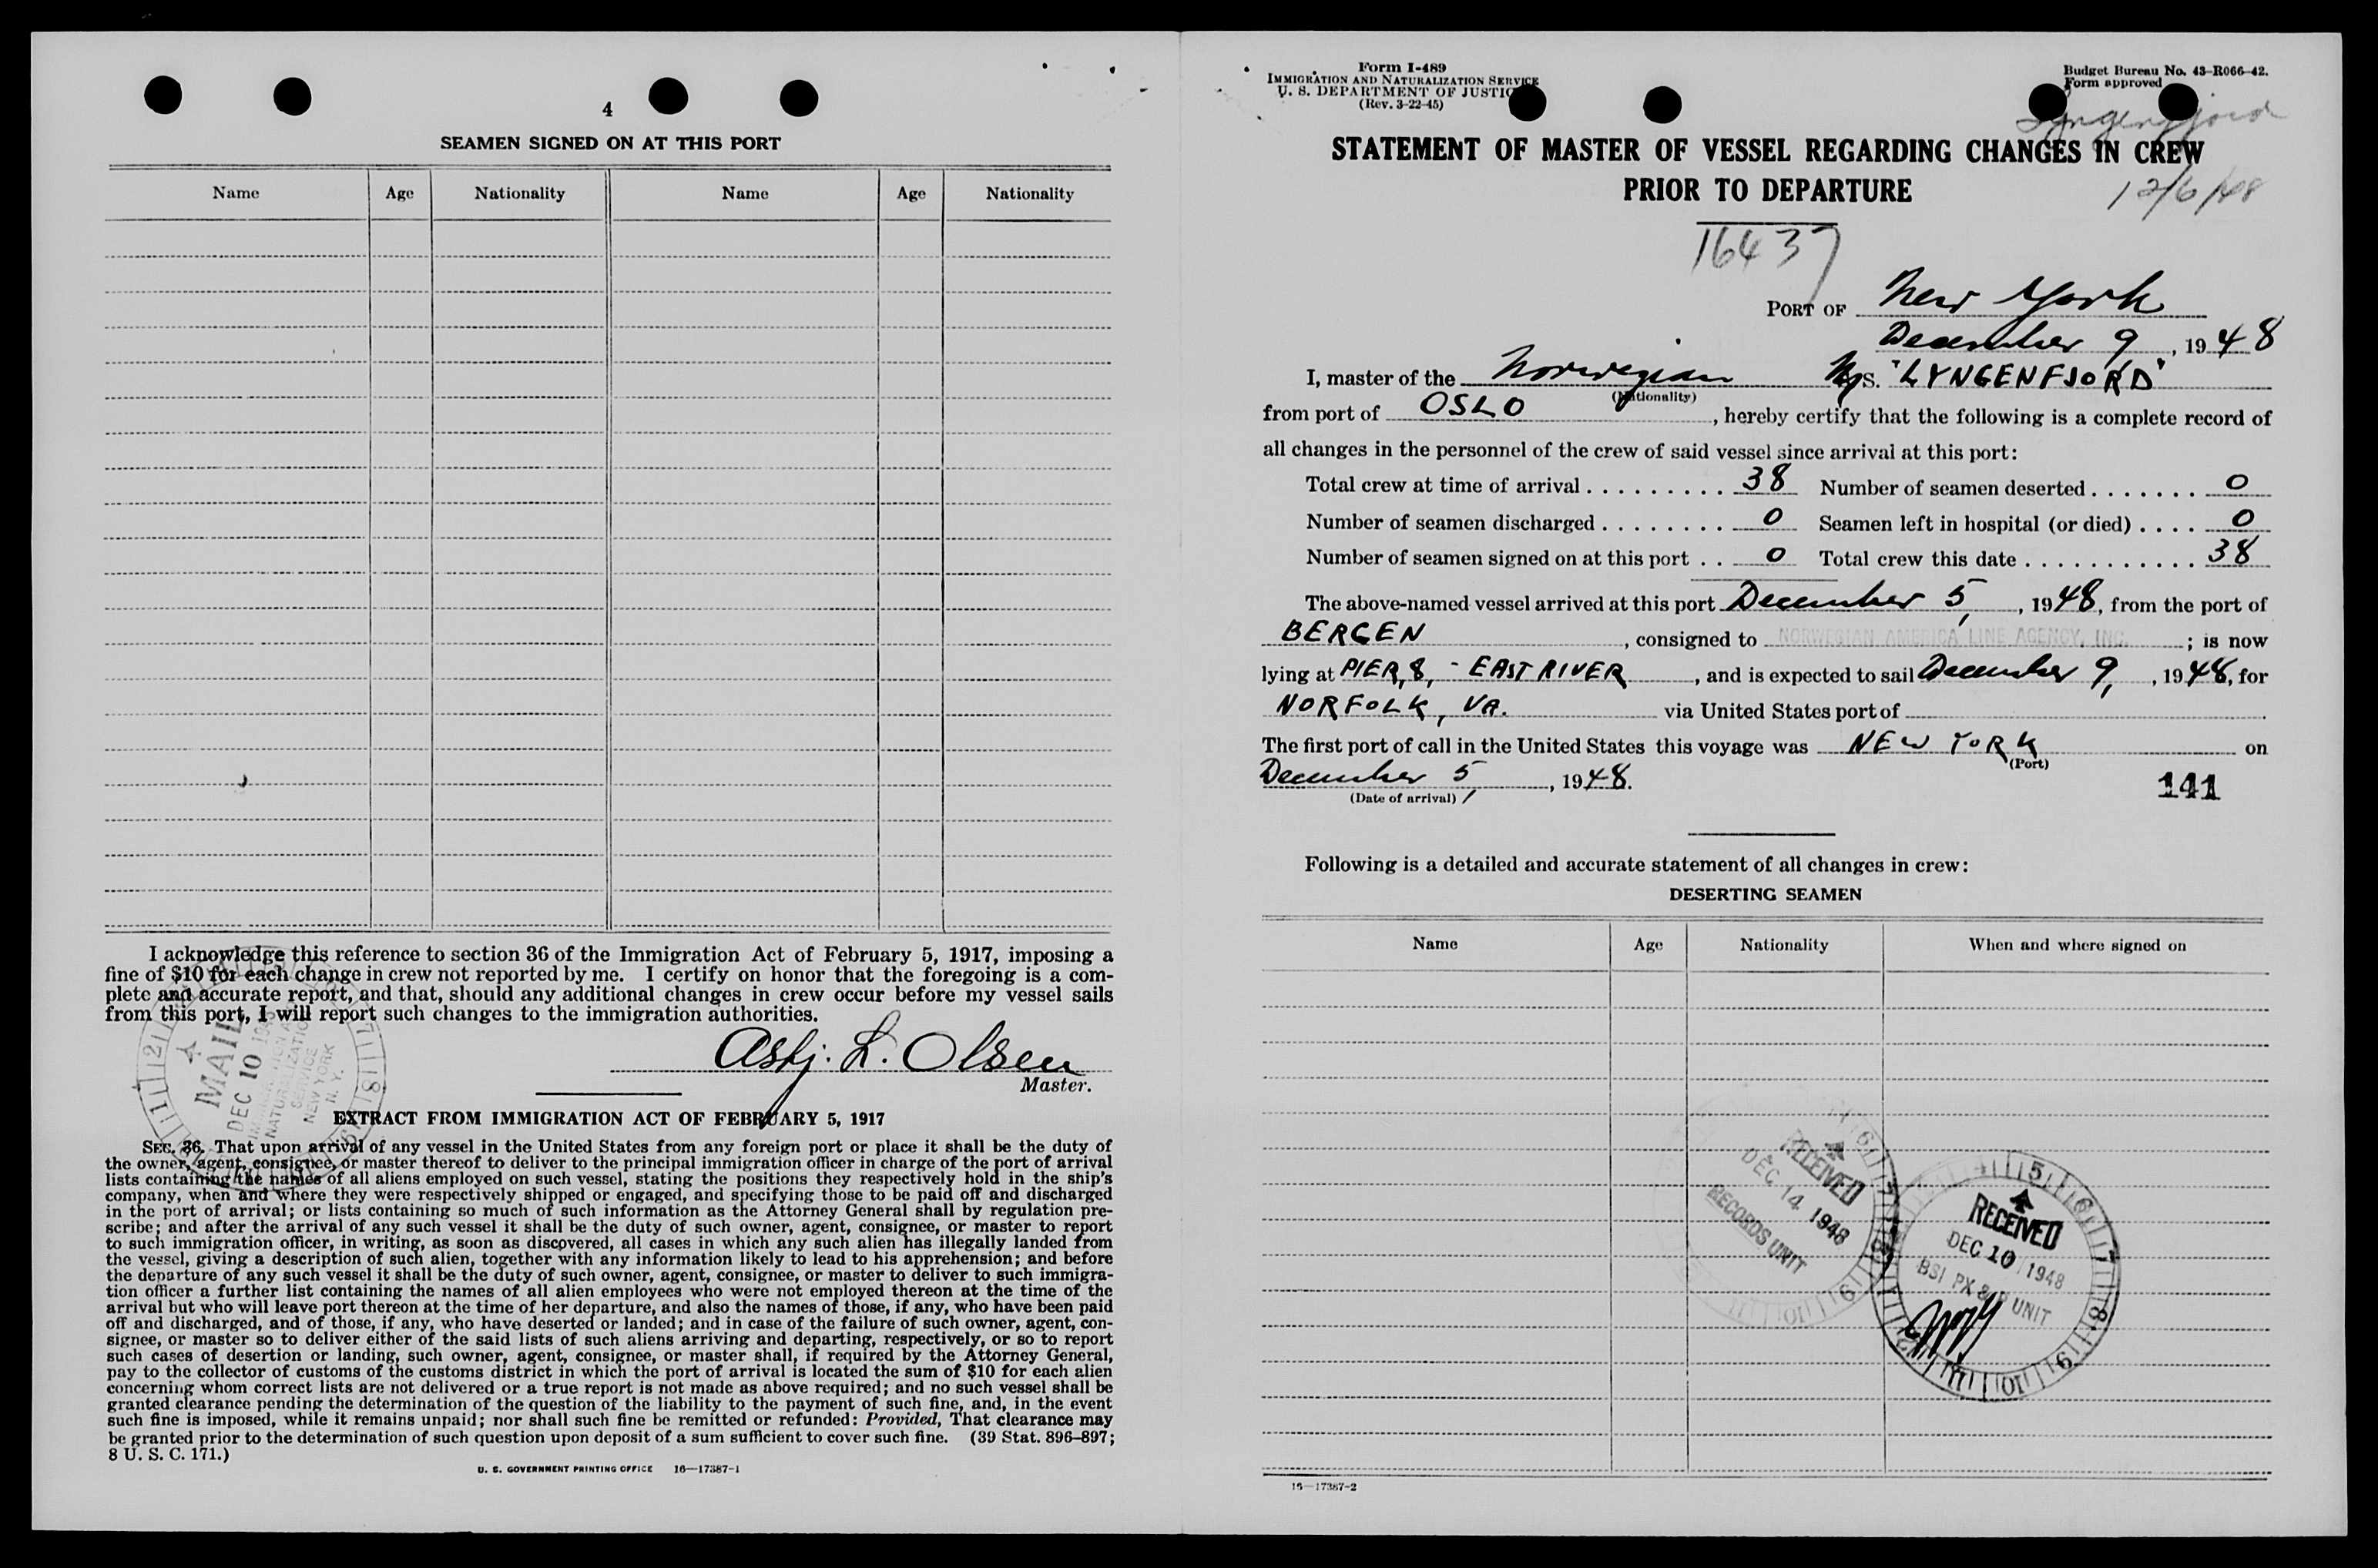 4
SEAMEN SIGNED ON AT THIS PORT
Name Age Nationality Name Age Nationality
I acknowledge this reference to section 36 of the Immigration Act of February 5, 1917, imposing a
fine of $10 for each change in crew not reported by me. I certify on honor that the foregoing is a com-
plete and accurate report, and that, should any additional changes in crew occur before my vessel sails
from this port, I will report such changes to the immigration authorities.
Asbj. L. Olsen
Master.
MAIL
DEC 10 1948
IMMIGRATION AND
NATURALIZATION
SERVICE
NEW YORK
N. Y.
EXTRACT FROM IMMIGRATION ACT OF FEBRUARY 5, 1917
SEC. 36. That upon arrival of any vessel in the United States from any foreign port or place it shall be the duty of
the owner, agent, consignee, or master thereof to deliver to the principal immigration officer in charge of the port of arrival
lists containing the names of all aliens employed on such vessel, stating the positions they respectively hold in the ship's
company, when and where they were respectively shipped or engaged, and specifying those to be paid off and discharged
in the port of arrival; or lists containing so much of such information as the Attorney General shall by regulation pre-
scribe; and after the arrival of any such vessel it shall be the duty of such owner, agent, consignee, or master to report
to such immigration officer, in writing, as soon as discovered, all cases in which any such alien has illegally landed from
the vessel, giving a description of such alien, together with any information likely to lead to his apprehension; and before
the departure of any such vessel it shall be the duty of such owner, agent, consignee, or master to deliver to such immigra-
tion officer a further list containing the names of all alien employees who were not employed thereon at the time of the
arrival but who will leave port thereon at the time of her departure, and also the names of those, if any, who have been paid
off and discharged, and of those, if any, who have deserted or landed; and in case of the failure of such owner, agent, con-
signee, or master so to deliver either of the said lists of such aliens arriving and departing, respectively, or so to report
such cases of desertion or landing, such owner, agent, consignee, or master shall, if required by the Attorney General,
pay to the collector of customs of the customs district in which the port of arrival is located the sum of $10 for each alien
concerning whom correct lists are not delivered or a true report is not made as above required; and no such vessel shall be
granted clearance pending the determination of the question of the liability to the payment of such fine, and, in the event
such fine is imposed, while it remains unpaid; nor shall such fine be remitted or refunded: Provided, That clearance may
be granted prior to the determination of such question upon deposit of a sum sufficient to cover such fine. (39 Stat. 896–897;
8 U. S. C. 171.)
U. S. GOVERNMENT PRINTING OFFICE 16—17387-1
Form I-489
IMMIGRATION AND NATURALIZATION SERVICE
U. S. DEPARTMENT OF JUSTICE
(Rev. 3-22-45)
Budget Bureau No. 43-R066-42.
Form approved
Lyngenfjord
STATEMENT OF MASTER OF VESSEL REGARDING CHANGES IN CREW
PRIOR TO DEPARTURE
12/6/48
16437
PORT OF New York
December 9, 1948
I, master of the Norwegian M/S. "LYNGENFJORD"
(Nationality)
from port of OSLO, hereby certify that the following is a complete record of
all changes in the personnel of the crew of said vessel since arrival at this port:
Total crew at time of arrival . . . . . . . . . . 38 Number of seamen deserted . . . . . . . 0
Number of seamen discharged . . . . . . . . 0 Seamen left in hospital (or died) . . . . 0
Number of seamen signed on at this port . . 0 Total crew this date . . . . . . . . . . . . 38
The above-named vessel arrived at this port December 5, 1948, from the port of
BERGEN, consigned to NORWEGIAN AMERICA LINE AGENCY, INC.; is now
lying at PIER, 8, - EAST RIVER, and is expected to sail December 9, 1948, for
NORFOLK, VA. via United States port of
The first port of call in the United States this voyage was NEW YORK on
(Port)
December 5, 1948.
(Date of arrival)
141
Following is a detailed and accurate statement of all changes in crew:
DESERTING SEAMEN
Name Age Nationality When and where signed on
RECEIVED
DEC 14 1948
RECORDS UNIT
RECEIVED
DEC 10 1948
BSI PX & P UNIT
16—17387-2